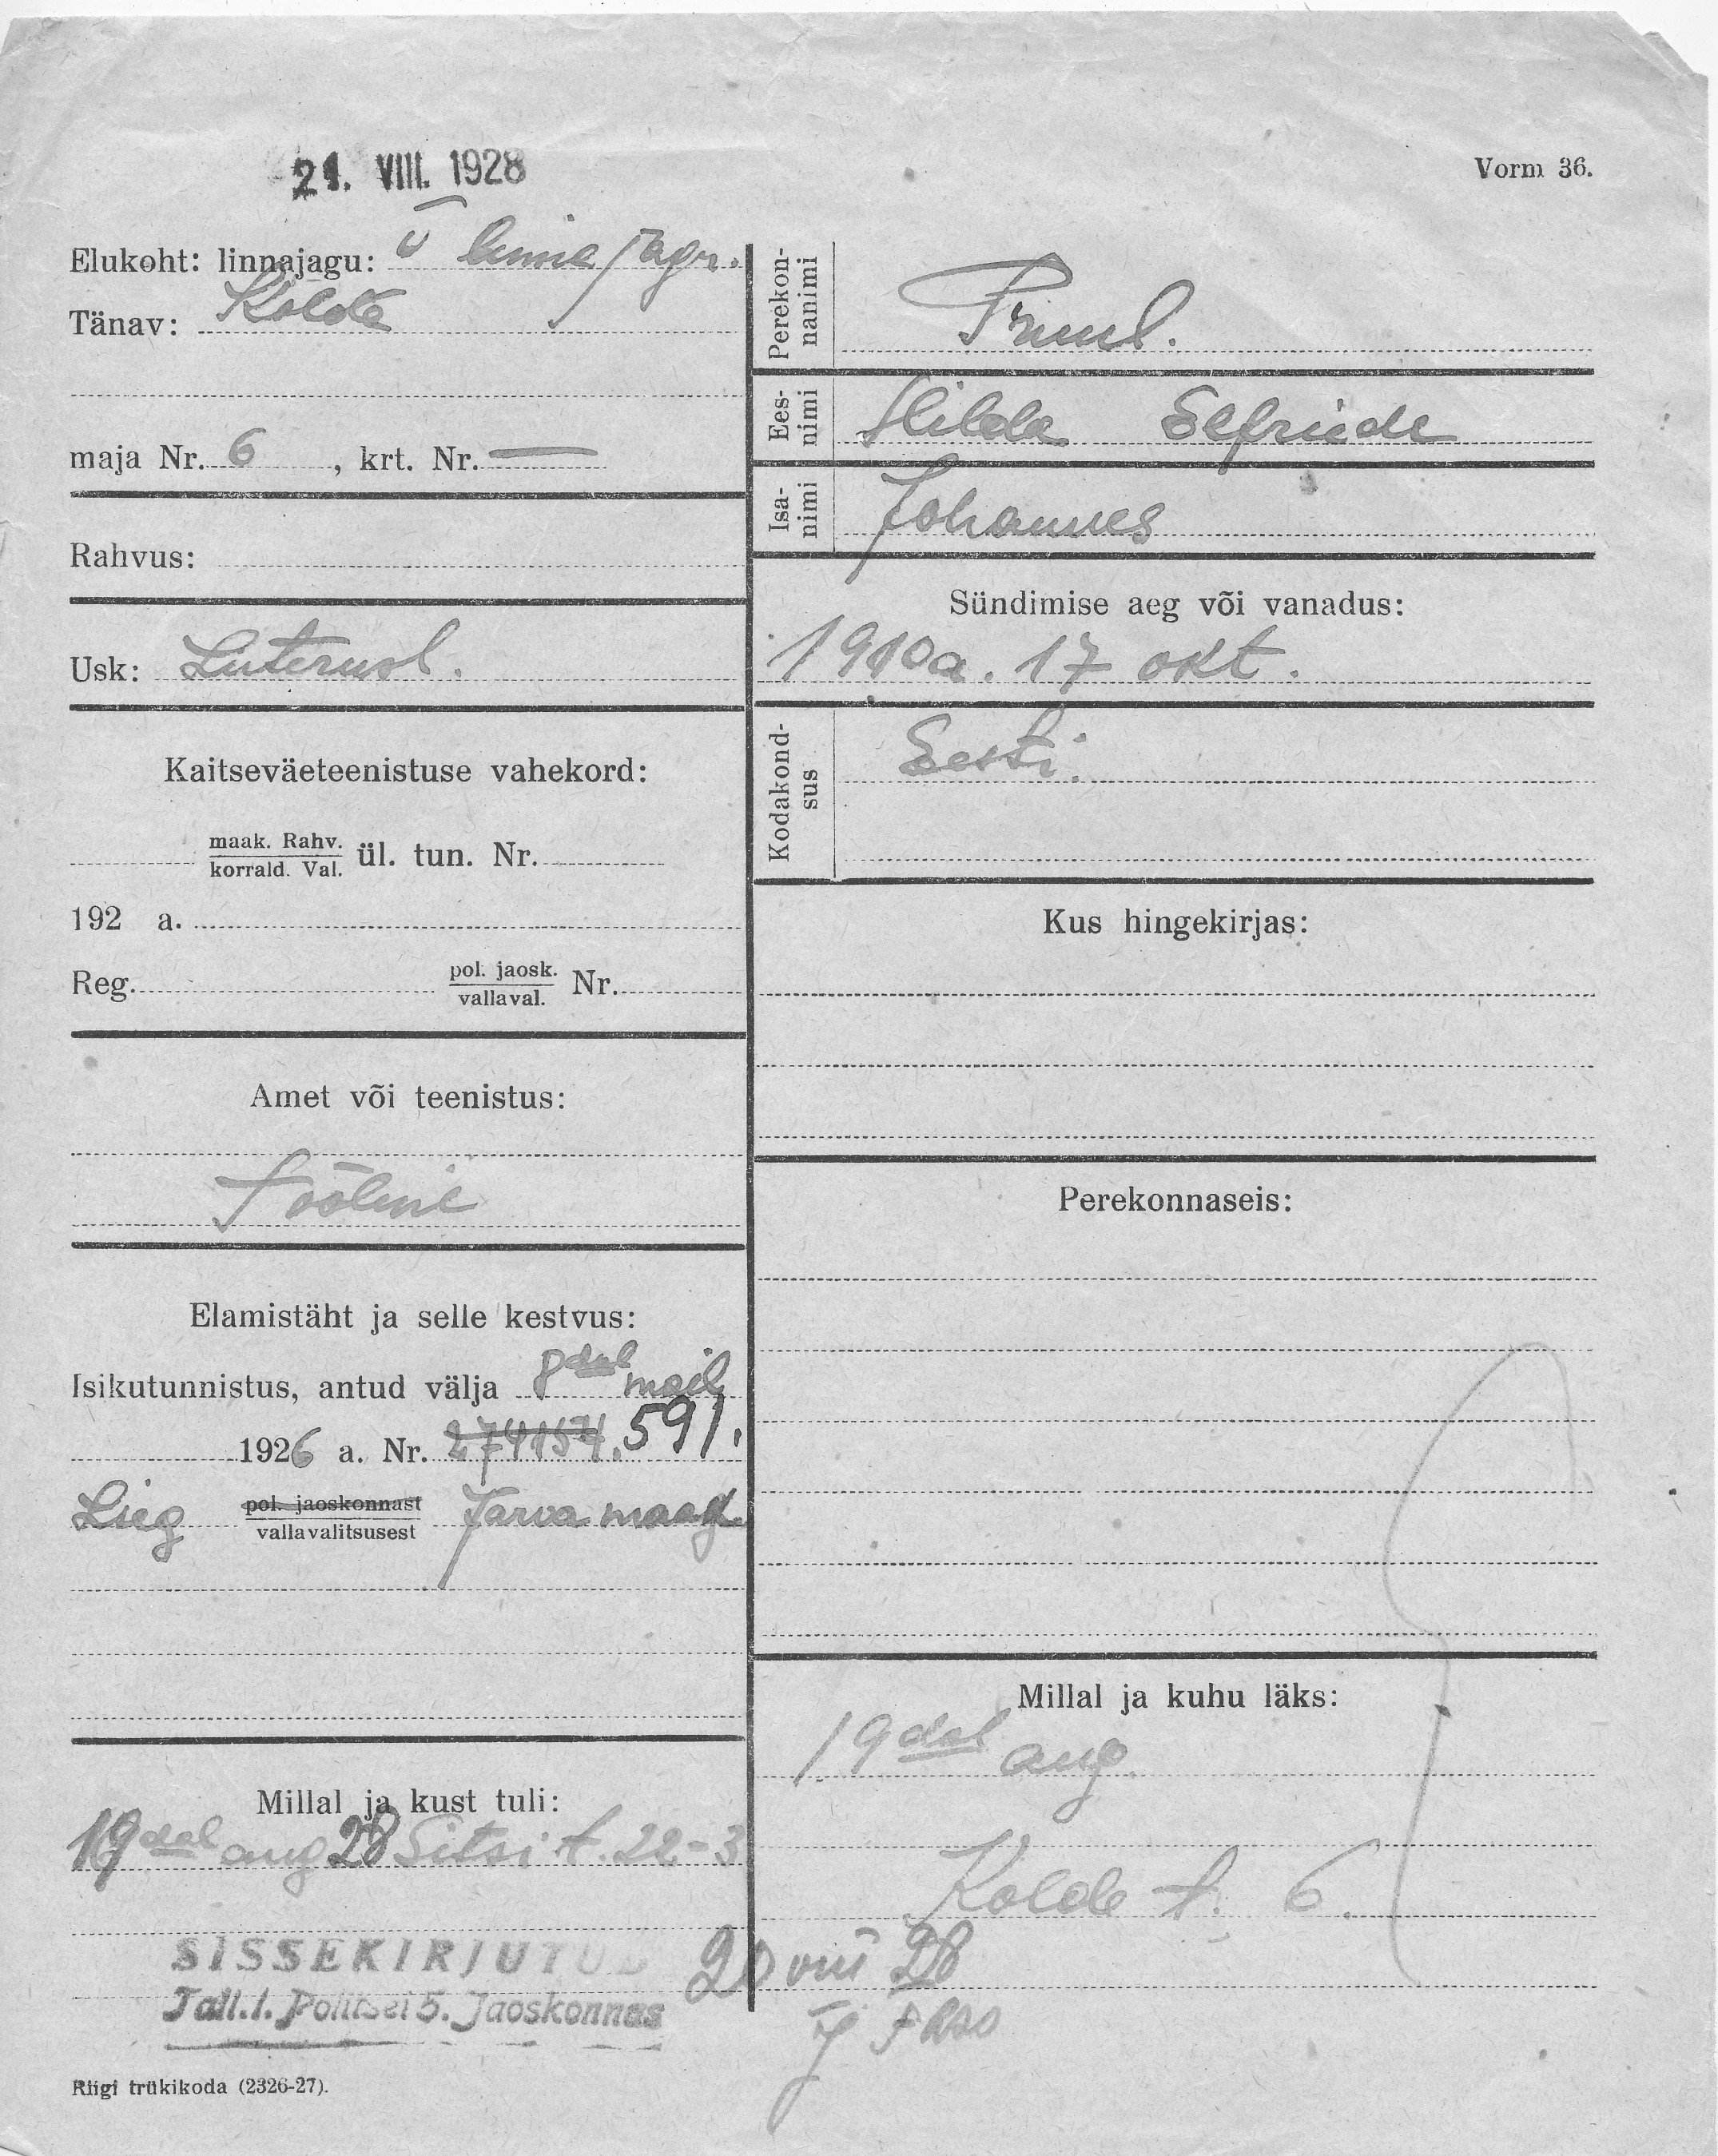 21. VIII. 1928
Vorm 36.
Elukoht: linnajagu: V linna jagu.
Tänav: Kolde
maja Nr. 6 , krt. Nr. —
Rahvus:
Usk: Luterusl.
Kaitseväeteenistuse vahekord:
maak. Rahv.
korrald. Val. ül. tun. Nr.
192 a.
Reg. pol. jaosk.
vallaval. Nr.
Amet või teenistus:
Tööline
Elamistäht ja selle kestvus:
Isikutunnistus, antud välja 8dal mail
1926 a. Nr. 274154. 591.
Lieg pol. jaoskonnast
vallavalitsusest Järvamaag.
Millal ja kust tuli:
19dal aug 28 Sitsi t. 22-3
SISSEKIRJUTUD
Tall.l. Politsei 5. Jaoskonnas
Riigi trükikoda (2326-27).
Perekon-
nanimi
Pruul.
Ees-
nimi
Hilda Elfriede
Isa-
nimi
Johannes
Sündimise aeg või vanadus:
1910a. 17 okt.
Kodakond-
sus
Eesti.
Kus hingekirjas:
Perekonnaseis:
Millal ja kuhu läks:
19dal aug.
Kolde t. 6.
20 VIII 28